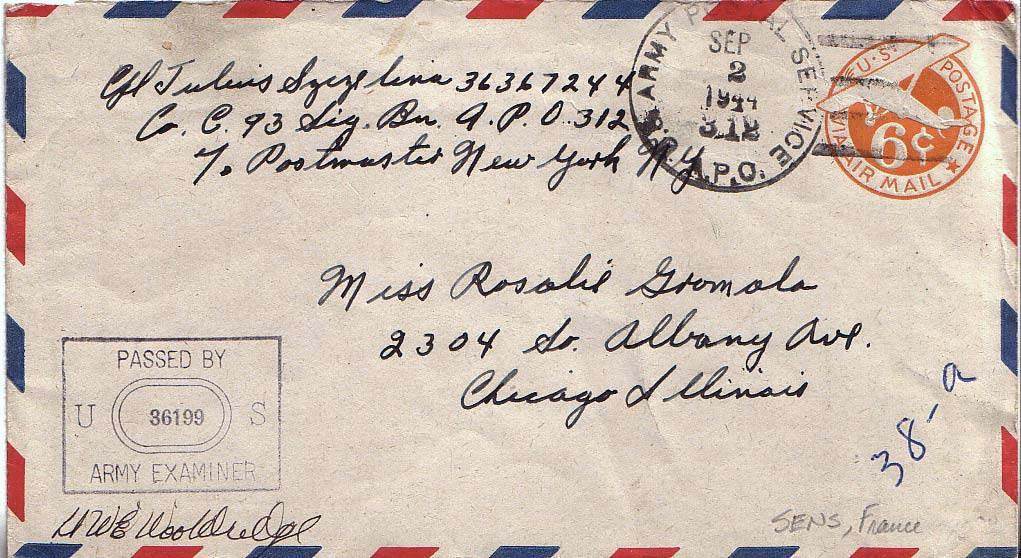 Cpl Julius Szczelina 36367244
Co. C. 93 Sig. Bn. A.P.O. 312
℅ Postmaster New York N.Y.
U.S. ARMY POSTAL SERVICE
SEP
2
1944
312
A.P.O.
U·S· POSTAGE
6¢
VIA AIR MAIL
Miss Rosalie Gromala
2304 So. Albany Ave.
Chicago Illinois
PASSED BY
U 36199 S
ARMY EXAMINER
38-a
SENS, France